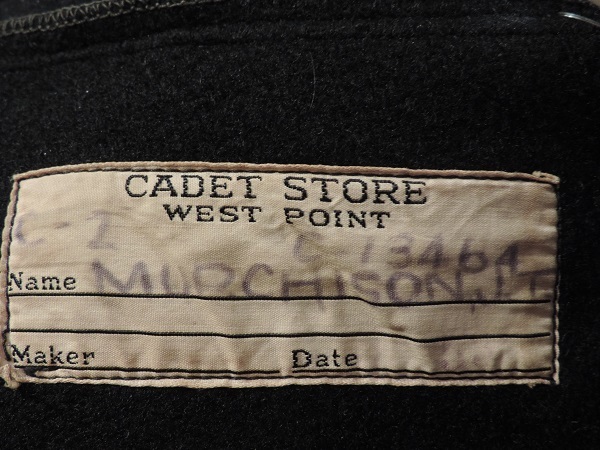 CADET STORE
WEST POINT
C-13464
Name MURCHISON, J.T.
Maker Date